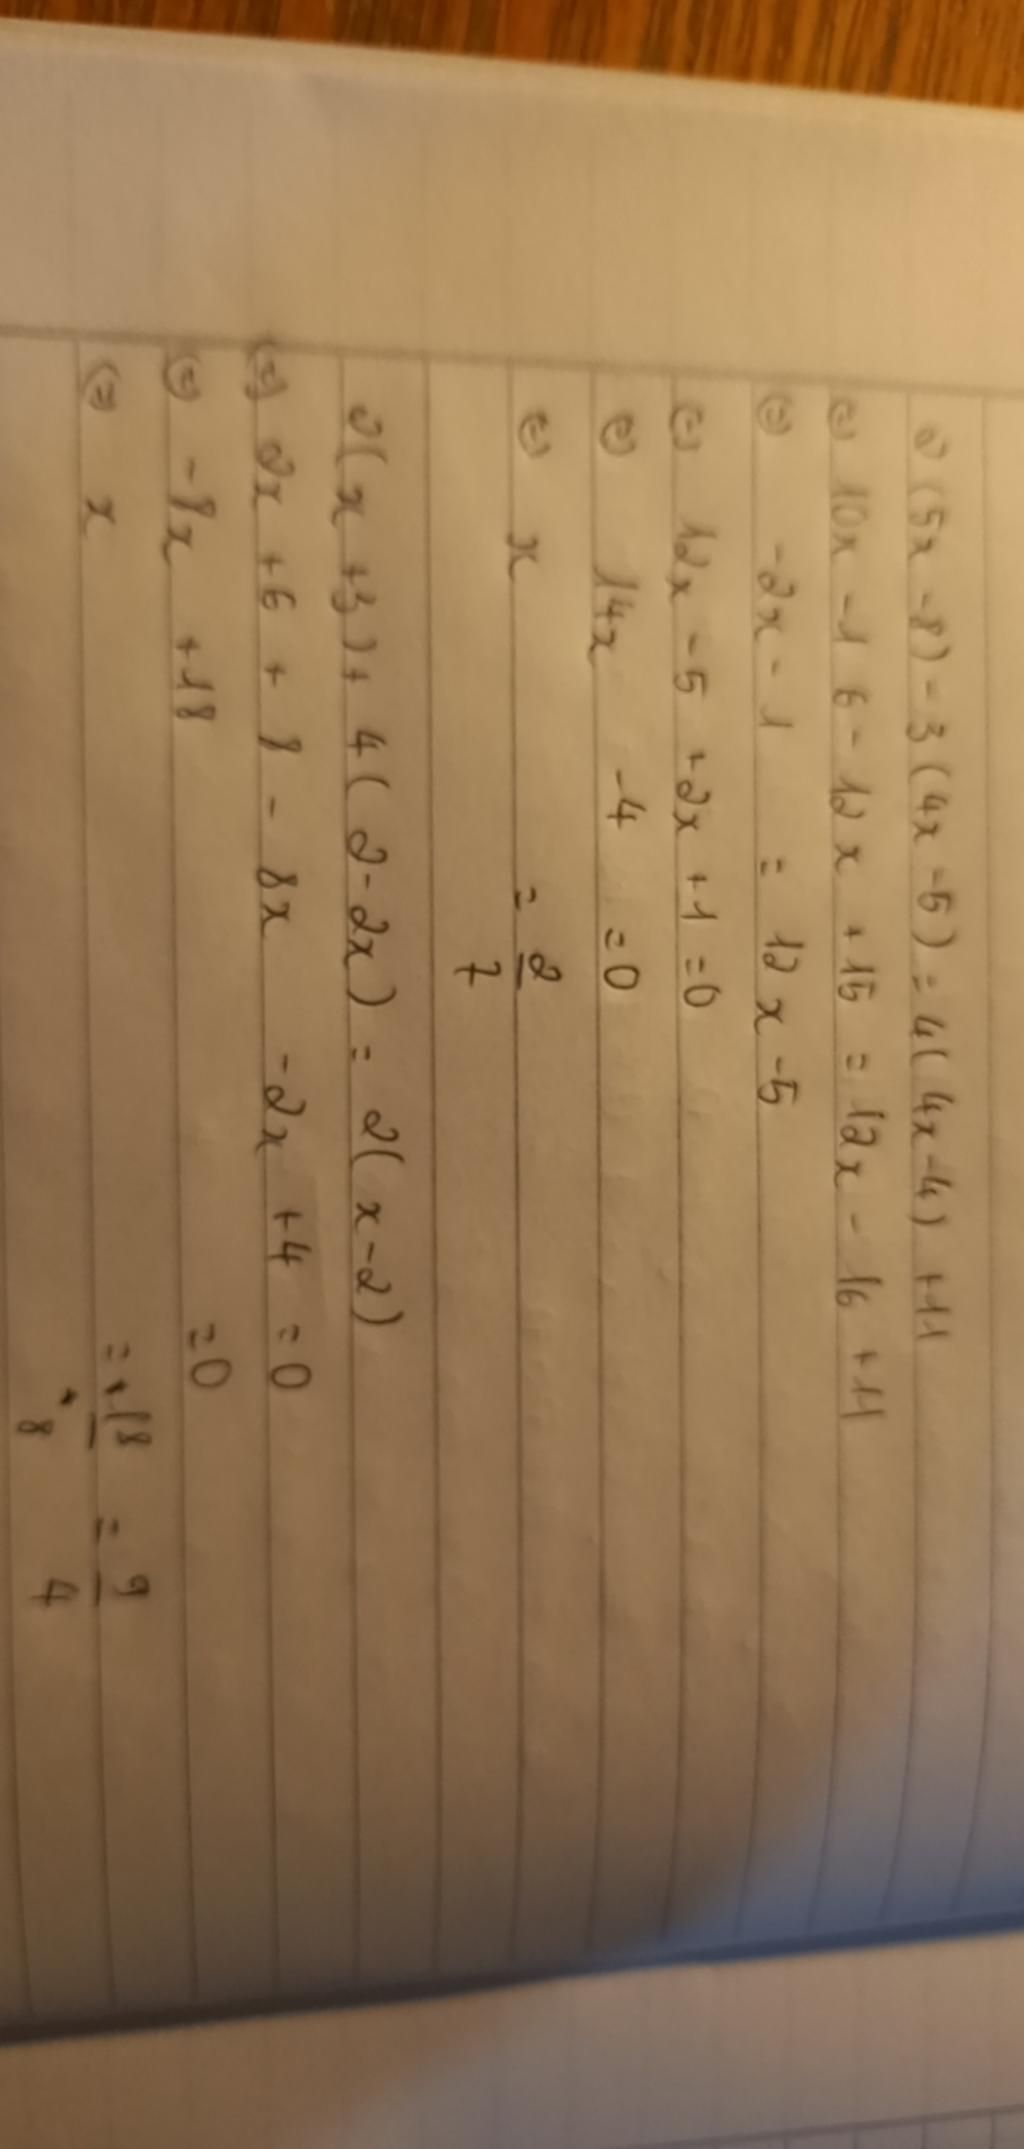 2(5x - 8) - 3(4x - 5) = 4(4x - 4) + 11
⇔ 10x - 16 - 12x + 15 = 12x - 16 + 11
⇔ -2x - 1 = 12x - 5
⇔ 12x - 5 + 2x + 1 = 0
⇔ 14x - 4 = 0
⇔ x = 2/7
2(x + 3) + 4(2 - 2x) = 2(x - 2)
⇔ 2x + 6 + 8 - 8x - 2x + 4 = 0
⇔ -8x + 18 = 0
⇔ x = +18/+8 = 9/4